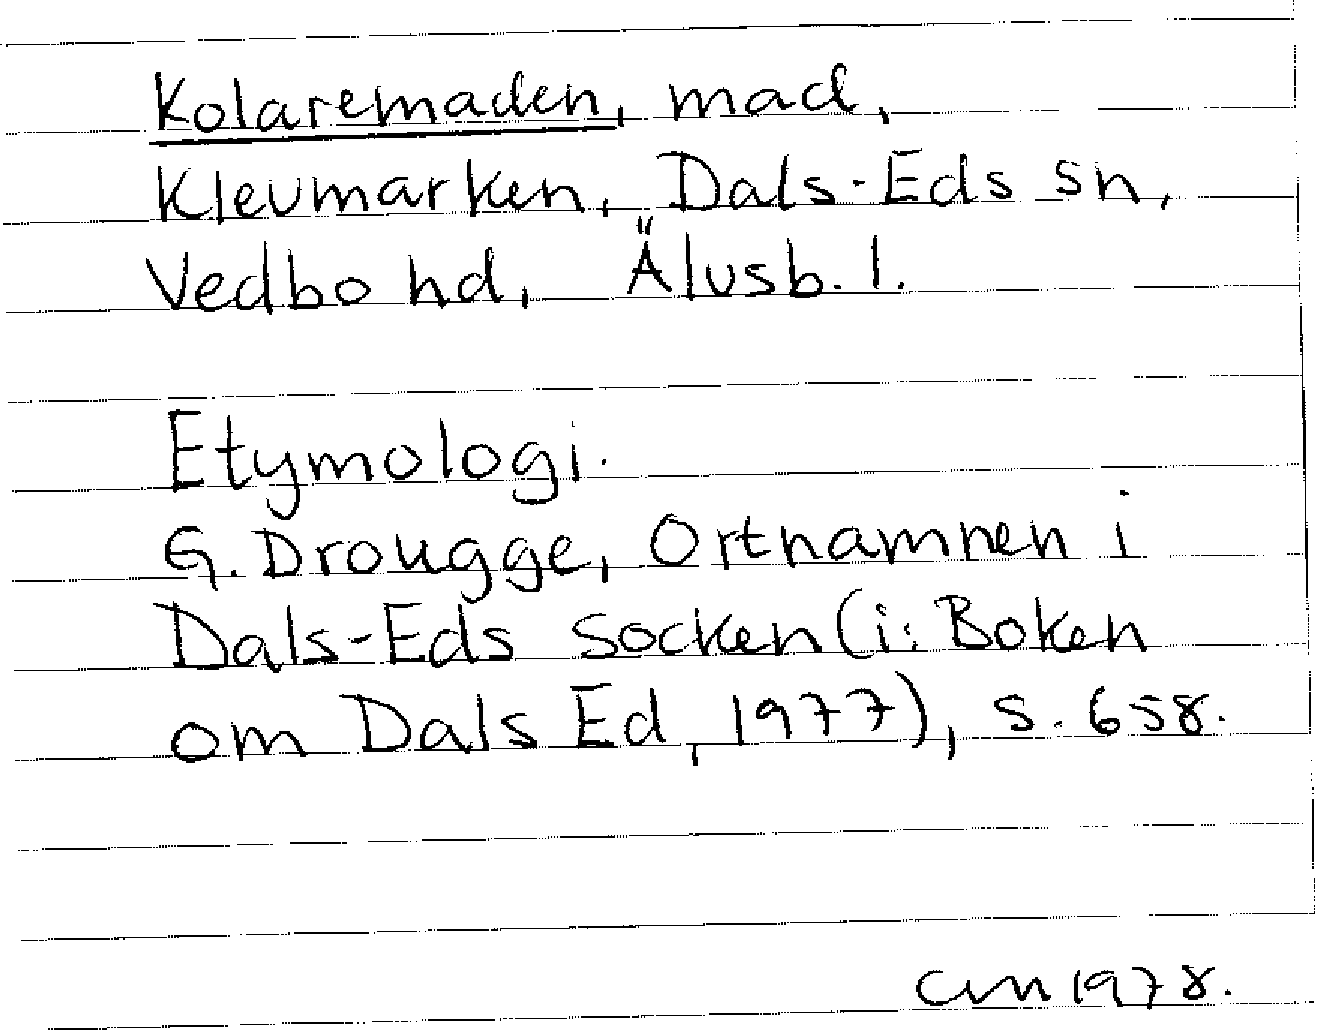 Kolaremaden, mad,
Klevmarken, Dals-Eds sn,
Vedbo hd, Älvsb. l.
Etymologi.
G. Drougge, Ortnamnen i
Dals-Eds socken (i: Boken
om Dals Ed, 1977), s. 658.
1978.